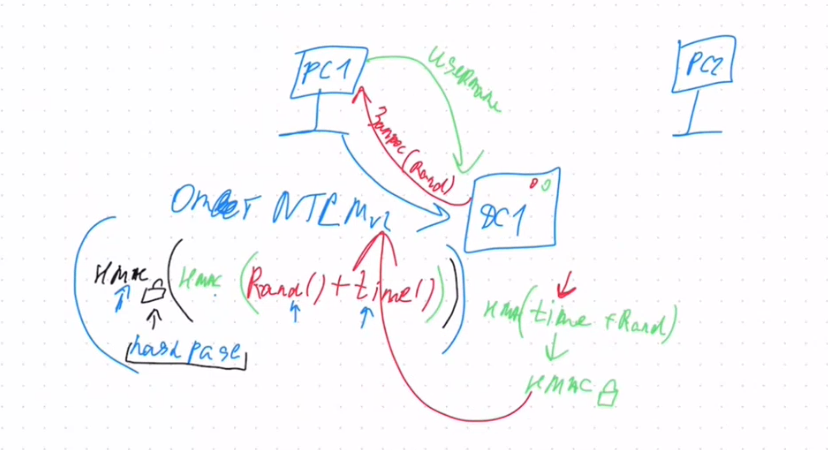 PC1
PC2
username
Запрос (Rand)
DC1
Ответ NTLMv2
HMAC ( HMAC ( Rand() + time() ) )
hash pase
HMAC (time + Rand)
HMAC